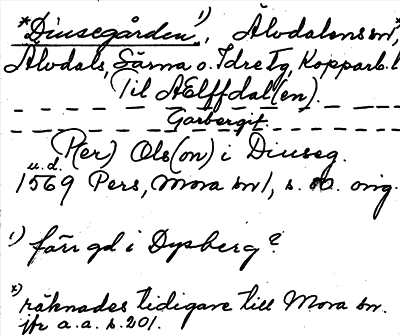 *Diusegården¹⁾, Älvdalens sn*,
Älvdals, Särna o. Idre tg, Kopparb. l
Til AElffdal(en).
Garbergit
P(er) Ols(on) i Diuseg.
u.d.
1569 Pers, Mora sn 1, s. orig.
¹⁾ färr gd i Dysberg?
*) räknades tidigare till Mora sn.
jfr a.a. s. 201.